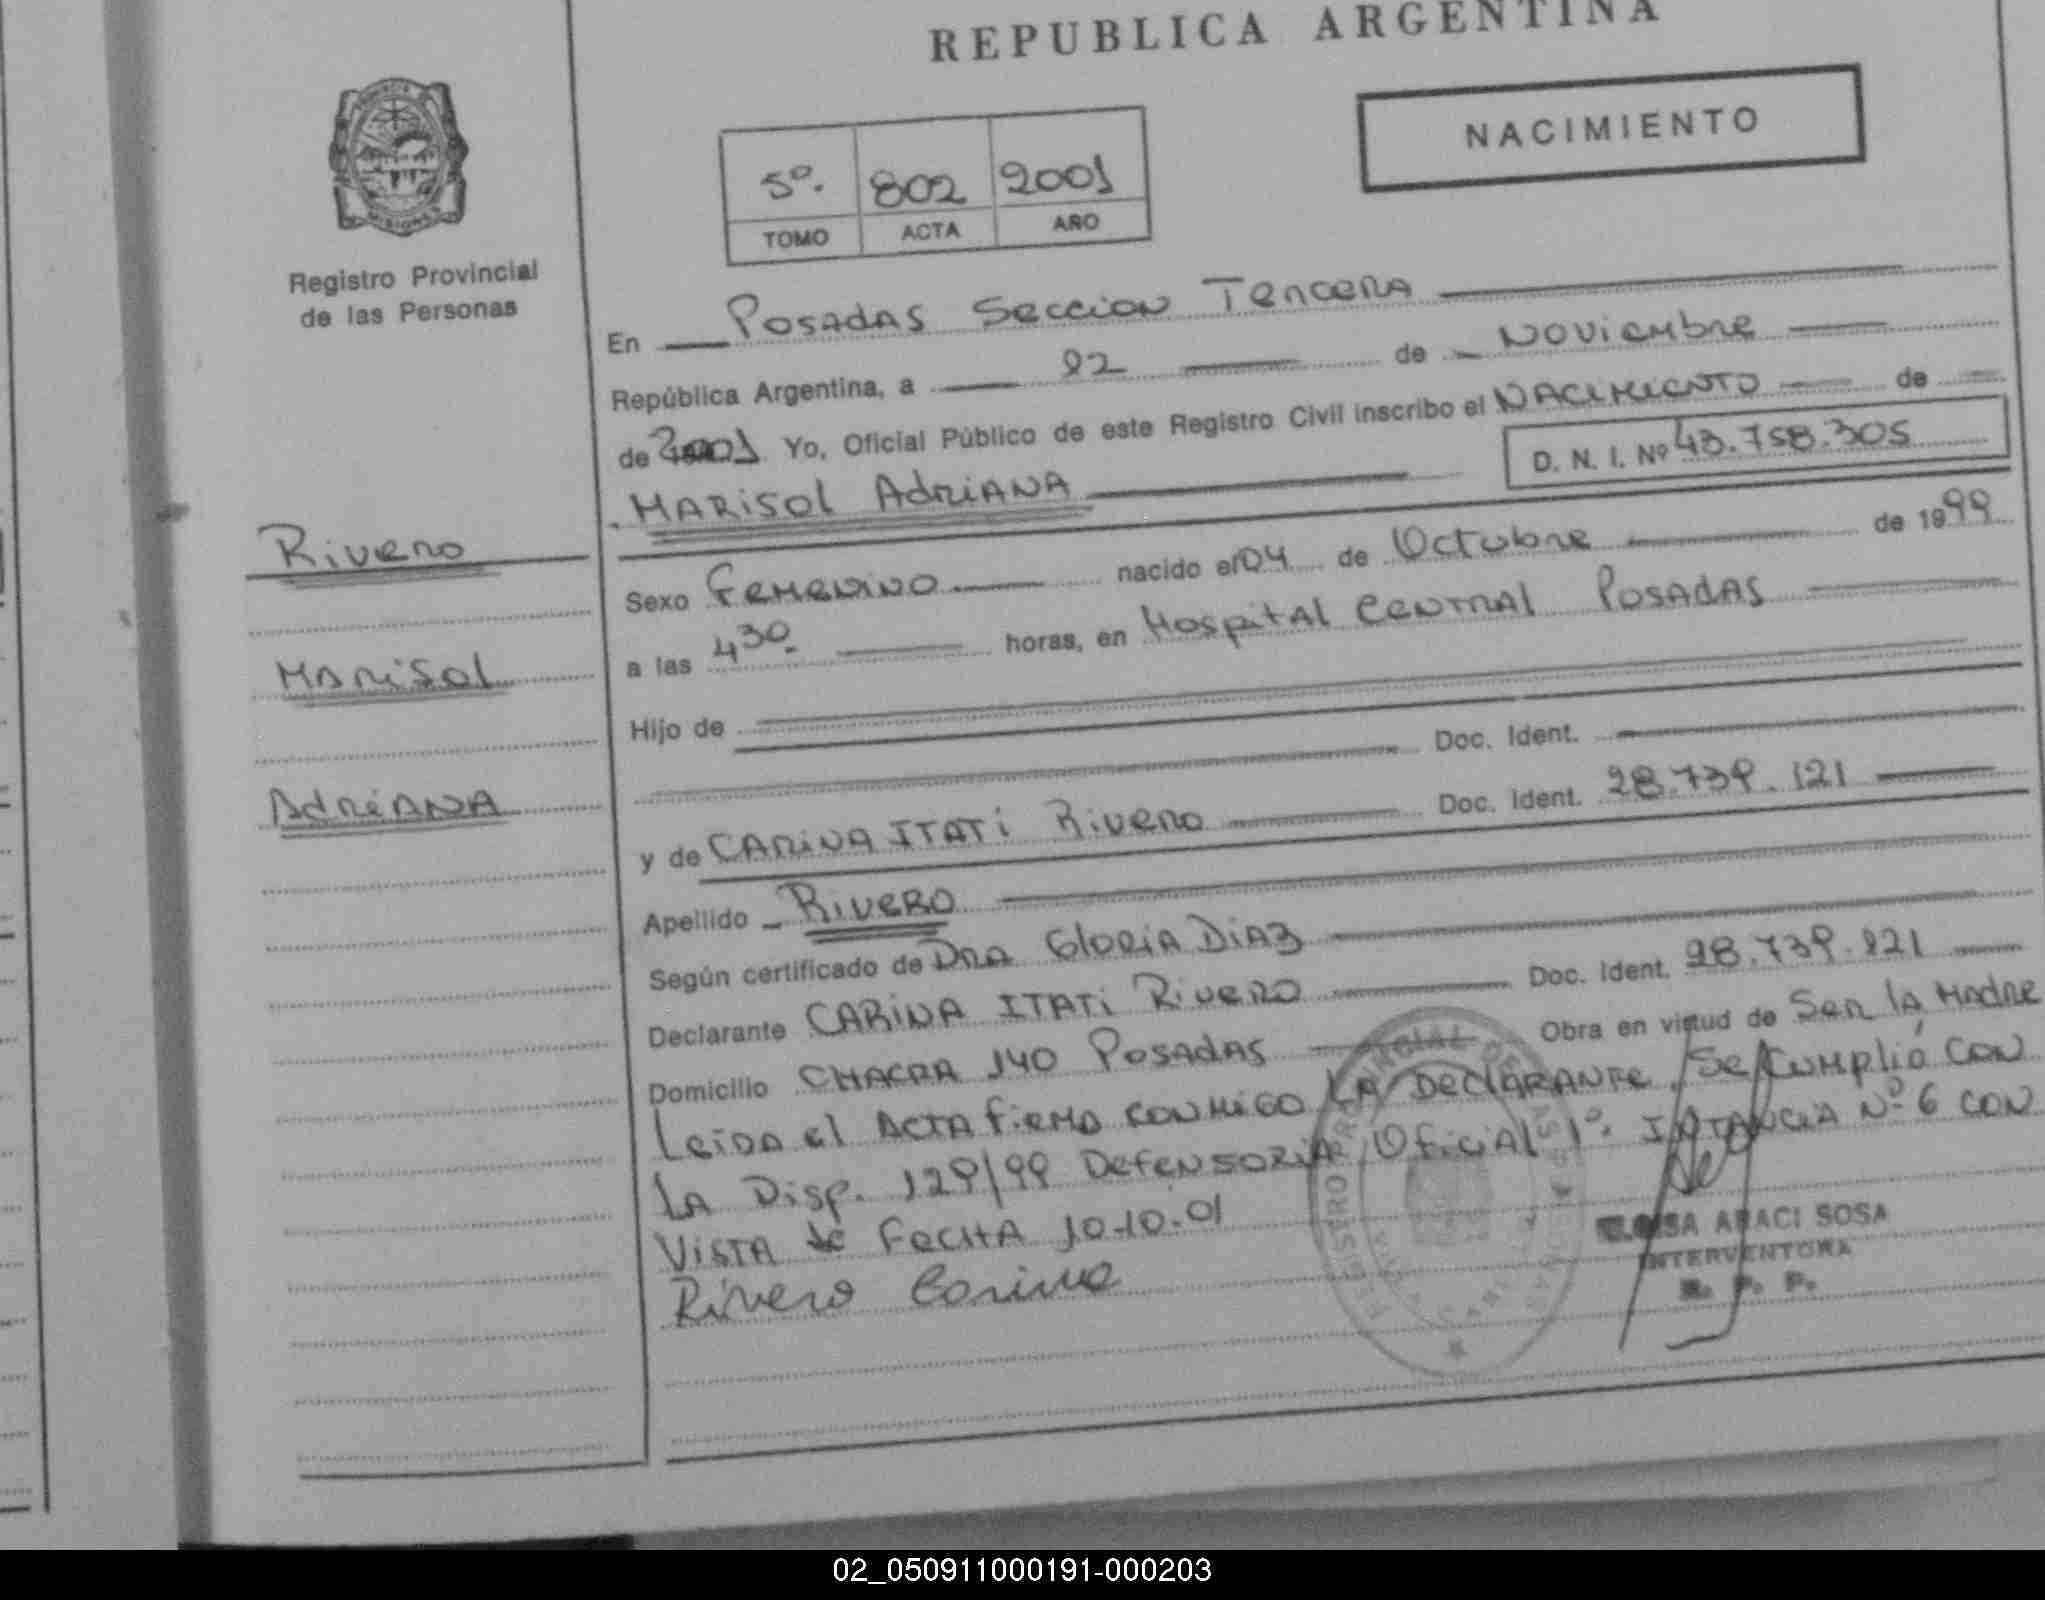 REPUBLICA ARGENTINA
NACIMIENTO
5º. 802 2001
TOMO ACTA AÑO
MISIONES
Registro Provincial
de las Personas
En Posadas Seccion Tercera
República Argentina, a 22 de Noviembre
de 2001 Yo, Oficial Público de este Registro Civil inscribo el Nacimiento de
Marisol Adriana D. N. I. Nº 43.758.305
Rivero
Marisol
Adriana
Sexo Femenino nacido el 04 de Octubre de 1999
a las 4 30 horas, en Hospital Central Posadas
Hijo de
Doc. Ident.
y de Carina Itati Rivero Doc. Ident. 28.739.121
Apellido Rivero
Según certificado de Dra Gloria Diaz
Declarante Carina Itati Rivero Doc. Ident. 28.739.121
Domicilio Chacra 140 Posadas Obra en virtud de Ser la Madre
Leida el Acta firma conmigo la Declarante. Se Cumplió con
la Disp. 129/99 Defensoria Oficial 1º. Nº 6 con
Vista de Fecha 10-10-01
Rivero Carina
ARACI SOSA
INTERVENTORA
R. P. P.
02_050911000191-000203